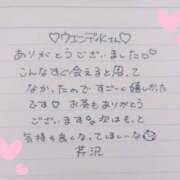 ♡ウエンディさん♡
ありがとうございました
こんなすぐ会えると思って
なかったのですごく嬉しかった
です♡ お茶もありがとう
ございます。 次はもっと
気持ち良くなってほしーな
芹沢